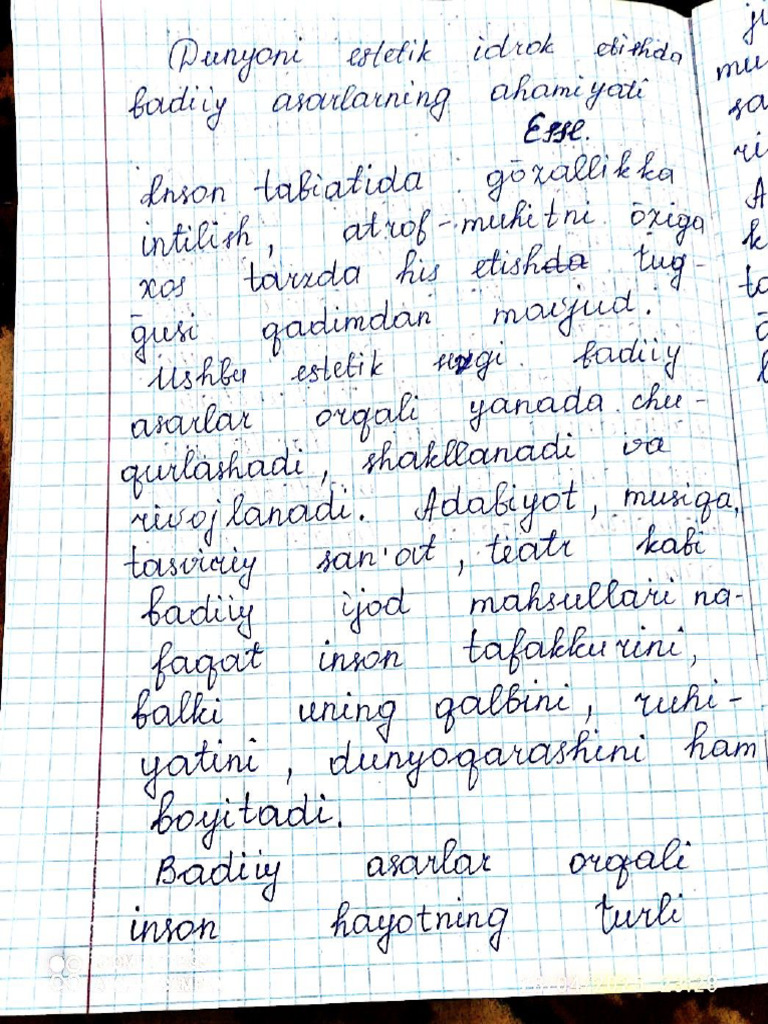 Dunyoni estetik idrok etishda
badiiy asarlarning ahamiyati
Esse.
Inson tabiatida gōzallikka
intilish, atrof-muhitni ōziga
xos tarzda his etishda tug-
ḡusi qadimdan mavjud.
Ushbu estetik
badiiy
asarlar orqali yanada chu-
qurlashadi, shakllanadi va
rivojlanadi. Adabiyot, musiqa,
tasviriy san'at, teatr kabi
badiiy ijod mahsullari na-
faqat inson tafakkurini,
balki uning qalbini, ruhi-
yatini, dunyoqarashini ham
boyitadi.
Badiiy asarlar orqali
inson hayotning turli